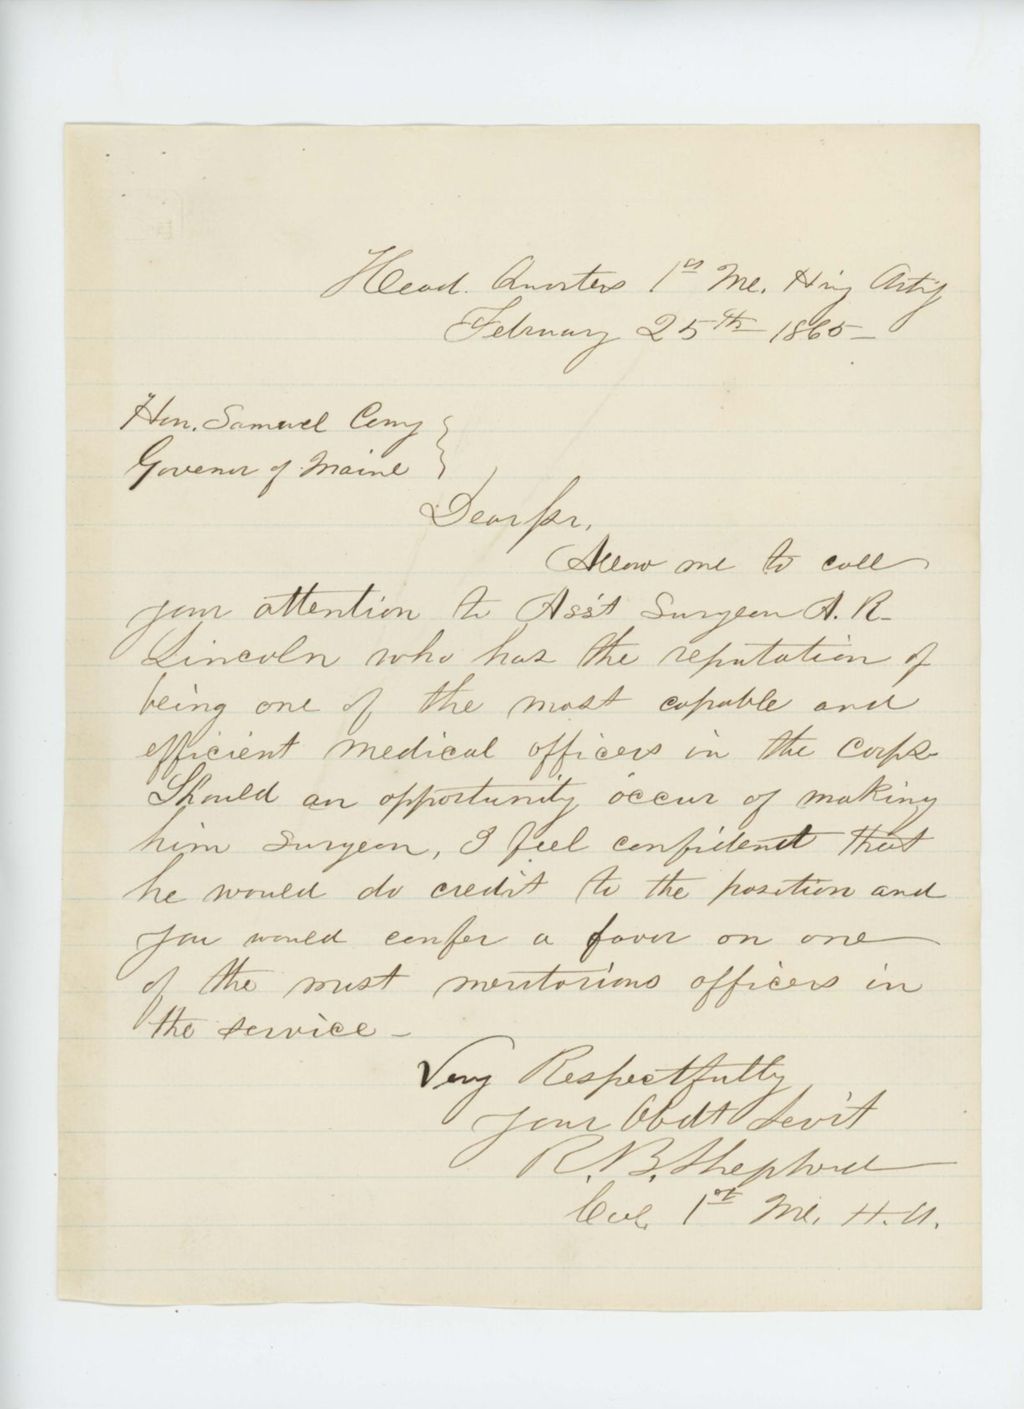 Head. Quarters 1st Me. Hvy Art'y
February 25th 1865
Hon. Samuel Cony
Govenor of Maine
Dear Sir,
Allow me to call
your attention to Ass't Surgeon A. R.
Lincoln who has the reputation of
being one of the most capable and
efficient medical officers in the Corps.
Should an opportunity occur of making
him Surgeon, I feel confident that
he would do credit to the position and
you would confer a favor on one
of the most meritorious officers in
the service -
Very Respectfully
your Obdt Serv't
R. B. Shepherd
Col. 1st Me. H. A.